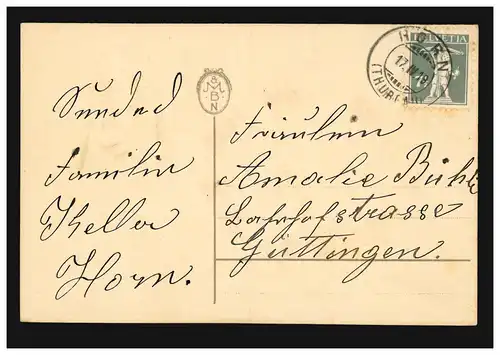 HELVETIA
HORN
17.
(THURGAU)
M & M
B
N
Sended
Familie
Keller
Horn.
Fräulein
Amalie Bühl
Bahnhofstrasse
Güttingen.